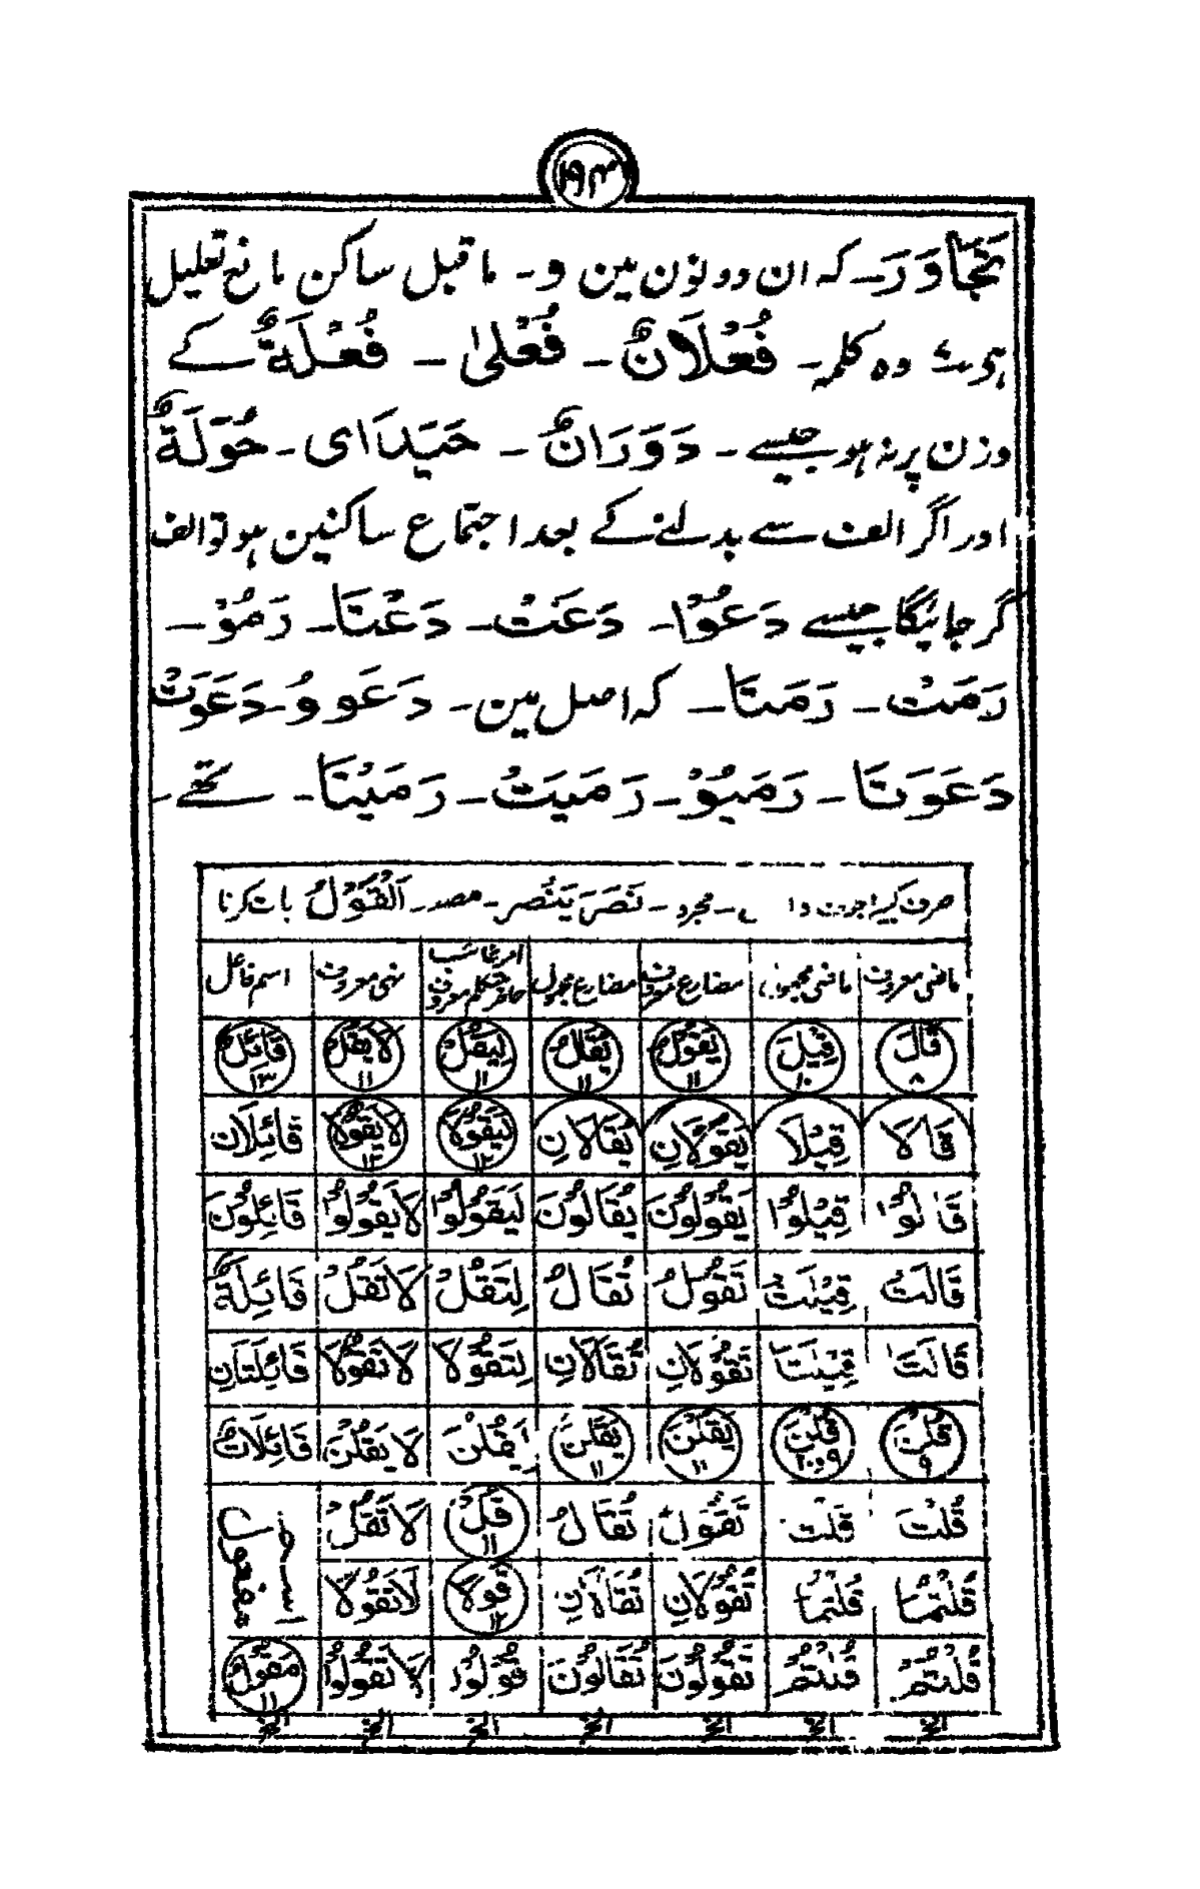 تَجَاوَرَ۔ کہ ان دونون مین و۔ ماقبل ساکن مانع تعلیل
وہ کلمہ۔ فُعْلَانٌ۔ فُعْلیٰ۔ فُعْلَةٌ کے
وزن پر نہ ہو جیسے۔ دَوَرَانٌ۔ حَیَدَای۔ حُوَلَةٌ
اور اگر الف سے بدلنے کے بعد اجتماع ساکنین ہو تو الف
گر جائیگا جیسے دَعَوْا۔ دَعَتْ۔ دَعَتَا۔ رَمَوْ۔
رَمَتْ۔ رَمَتَا۔ کہ اصل مین۔ دَعَوُو۔ دَعَوَتْ
دَعَوَتَا۔ رَمَیُوْ۔ رَمَیَتْ۔ رَمَیَتَا۔ تھے۔
صرف کبیر اجوف وا ی۔ مجرد۔ نَصَرَ یَنْصُر۔ مصدر۔ اَلْقَوْلُ بات کرنا
ماضی معروف ماضی مجہول مضارع معروف مضارع مجہول امر غائب حاضر متکلم معروف نہی معروف اسم فاعل
قَالَ ۸ قِیْلَ ۱۰ یَقُوْلُ ۱۱ یُقَالُ ۱۱ لِیَقُلْ ۱۱ لَا یَقُلْ ۱۱ قَائِلٌ ۱۳
قَالَا قِیْلَا یَقُوْلَانِ یُقَالَانِ لِیَقُوْلَا ۱۲ لَا یَقُوْلَا ۱۲ قَائِلَانِ
قَالُوْا قِیْلُوْا یَقُوْلُوْنَ یُقَالُوْنَ لِیَقُوْلُوْا لَا یَقُوْلُوْا قَائِلُوْنَ
قَالَتْ قِیْلَتْ تَقُوْلُ تُقَالُ لِتَقُلْ لَا تَقُلْ قَائِلَةٌ
قَالَتَا قِیْلَتَا تَقُوْلَانِ تُقَالَانِ لِتَقُوْلَا لَا تَقُوْلَا قَائِلَتَانِ
قُلْنَ ۹ قُلْنَ ۹ و ۱۰ یَقُلْنَ ۱۱ یُقَلْنَ ۱۱ لِیَقُلْنَ لَا یَقُلْنَ قَائِلَاتٌ
قُلْتَ قُلْتَ تَقُوْلُ تُقَالُ قُلْ ۱۱ لَا تَقُلْ اسم مفعول
قُلْتُمَا قُلْتُمَا تَقُوْلَانِ تُقَالَانِ قُوْلَا ۱۲ لَا تَقُوْلَا
قُلْتُمْ قُلْتُمْ تَقُوْلُوْنَ تُقَالُوْنَ قُوْلُوْا لَا تَقُوْلُوْا مَقُوْلٌ ۱۱
الخ الخ الخ الخ الخ الخ الخ